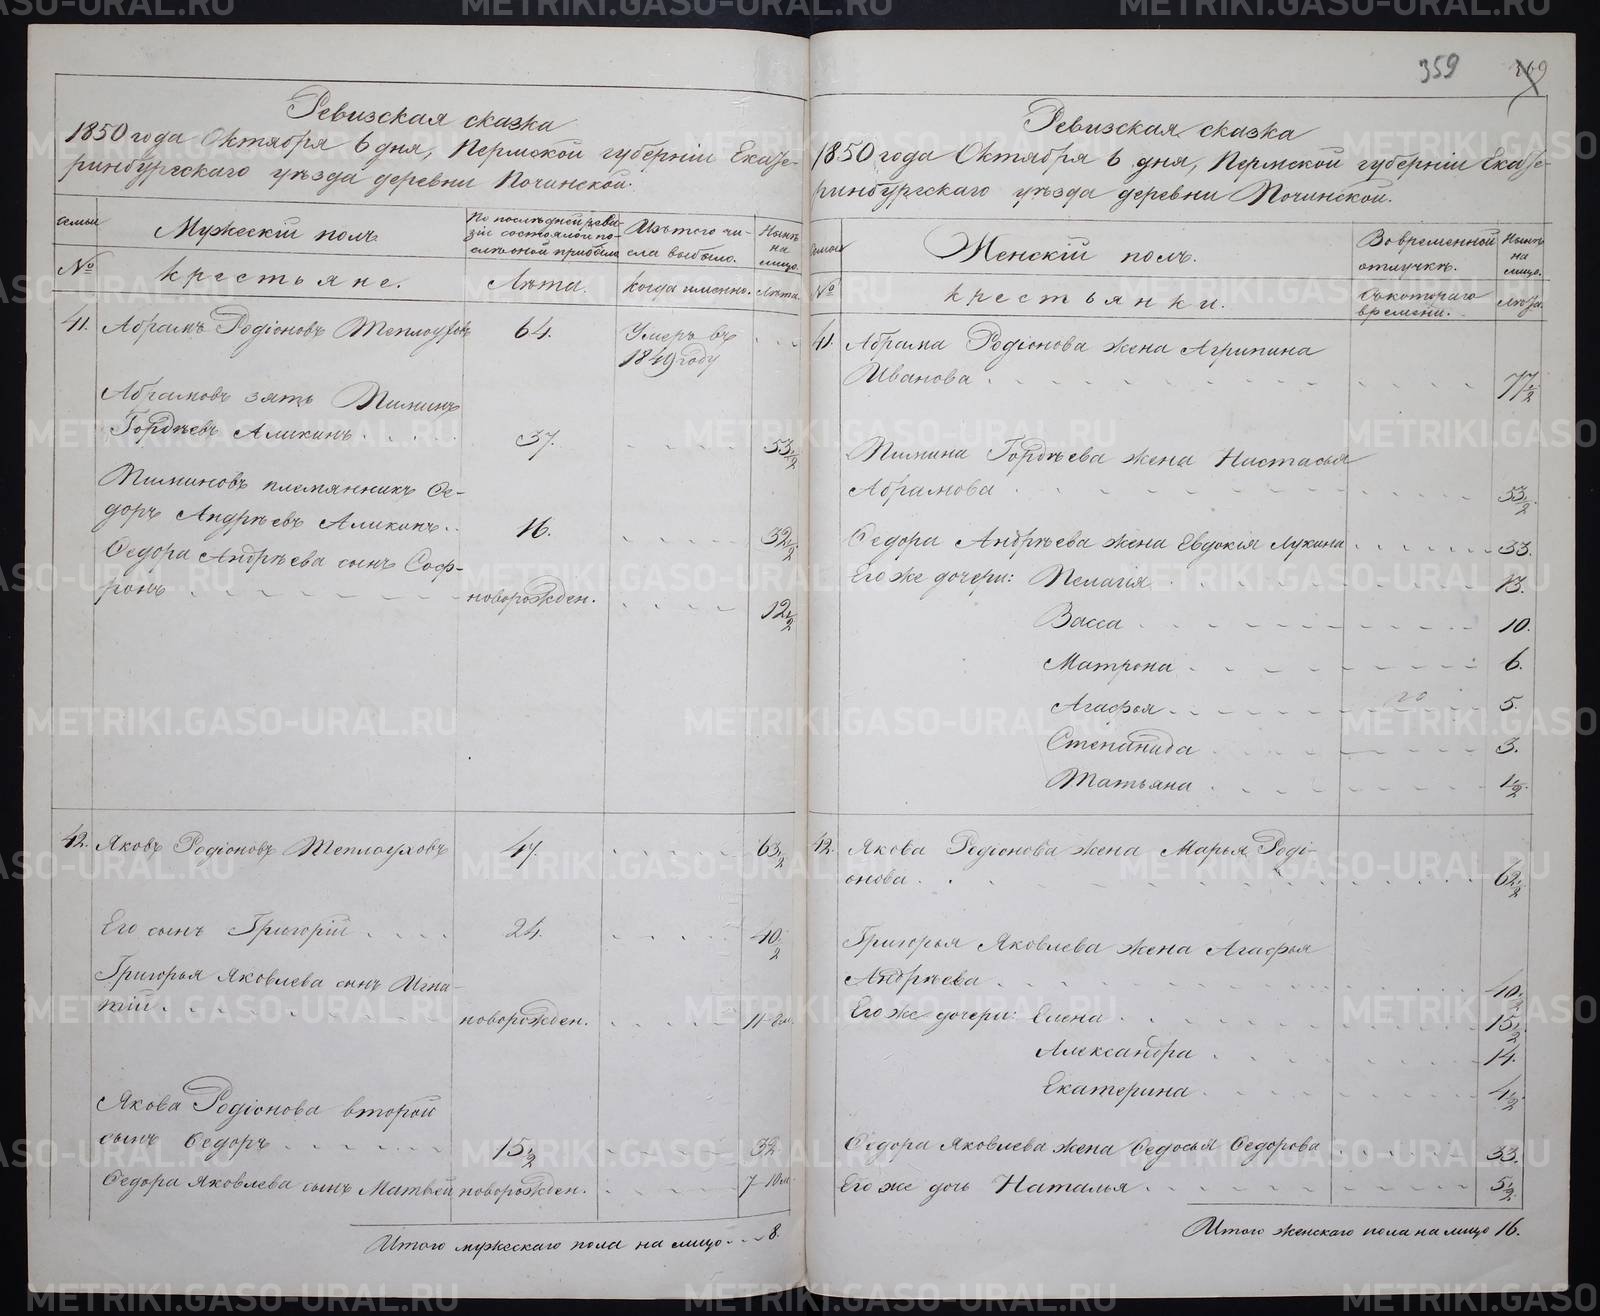 359
369
Ревизская сказка
1850 года Октября 6 дня, Пермской губернiи Екате-
ринбургскаго уѣзда деревни Починской.
Семьи
Мужескiй полъ
По послѣдней реви-
зiи состояло и по-
слѣ оной прибыло
Изъ того чи-
сла выбыло.
Нынѣ
на
лицо.
№
крестьяне.
Лѣта.
Когда именно.
Лѣта.
41. Абрамъ Родiоновъ Теплоуховъ 64. Умеръ въ
1849 году
Абрамовъ зять Пиминъ
Гордѣевъ Аликинъ 37. 53 1/2
Пиминовъ племянникъ Ѳе-
доръ Андрѣевъ Аликинъ 16. 32 1/2
Ѳедора Андрѣева сынъ Соф-
ронъ новорожден. 12 1/2
42. Яковъ Родiоновъ Теплоуховъ 47. 63 1/2
Его сынъ Григорiй 24. 40 1/2
Григорья Яковлева сынъ Игна-
тiй новорожден. 11
Якова Родiонова второй
сынъ Ѳедоръ 15 1/2 32
Ѳедора Яковлева сынъ Матвѣй новорожден. 7
Итого мужескаго пола на лицо 8.
Ревизская сказка
1850 года Октября 6 дня, Пермской губернiи Екате-
ринбургскаго уѣзда деревни Починской.
Семьи
Женскiй полъ.
Во временной
отлучкѣ.
Нынѣ
на
лицо.
№
крестьянки.
Съ котораго
времени.
Лѣта.
41. Абрама Родiонова жена Агрипина
Иванова 77 1/2
Пимина Гордѣева жена Настасья
Абрамова 53 1/2
Ѳедора Андрѣева жена Евдокiя Лукина 33.
Его же дочери: Пелагiя 13.
Васса 10.
Матрона 6.
Агафья 5.
Степанида 3.
Татьяна 1/2
42. Якова Родiонова жена Марья Родi-
онова 62 1/2
Григорья Яковлева жена Агафья
Андрѣева 40 1/2
Его же дочери: Елена 15 1/2
Александра 14.
Екатерина 4 1/2
Ѳедора Яковлева жена Ѳедосья Ѳедорова 33.
Его же дочь Наталья 5 1/2
Итого женскаго пола на лицо 16.
METRIKI.GASO-URAL.RU